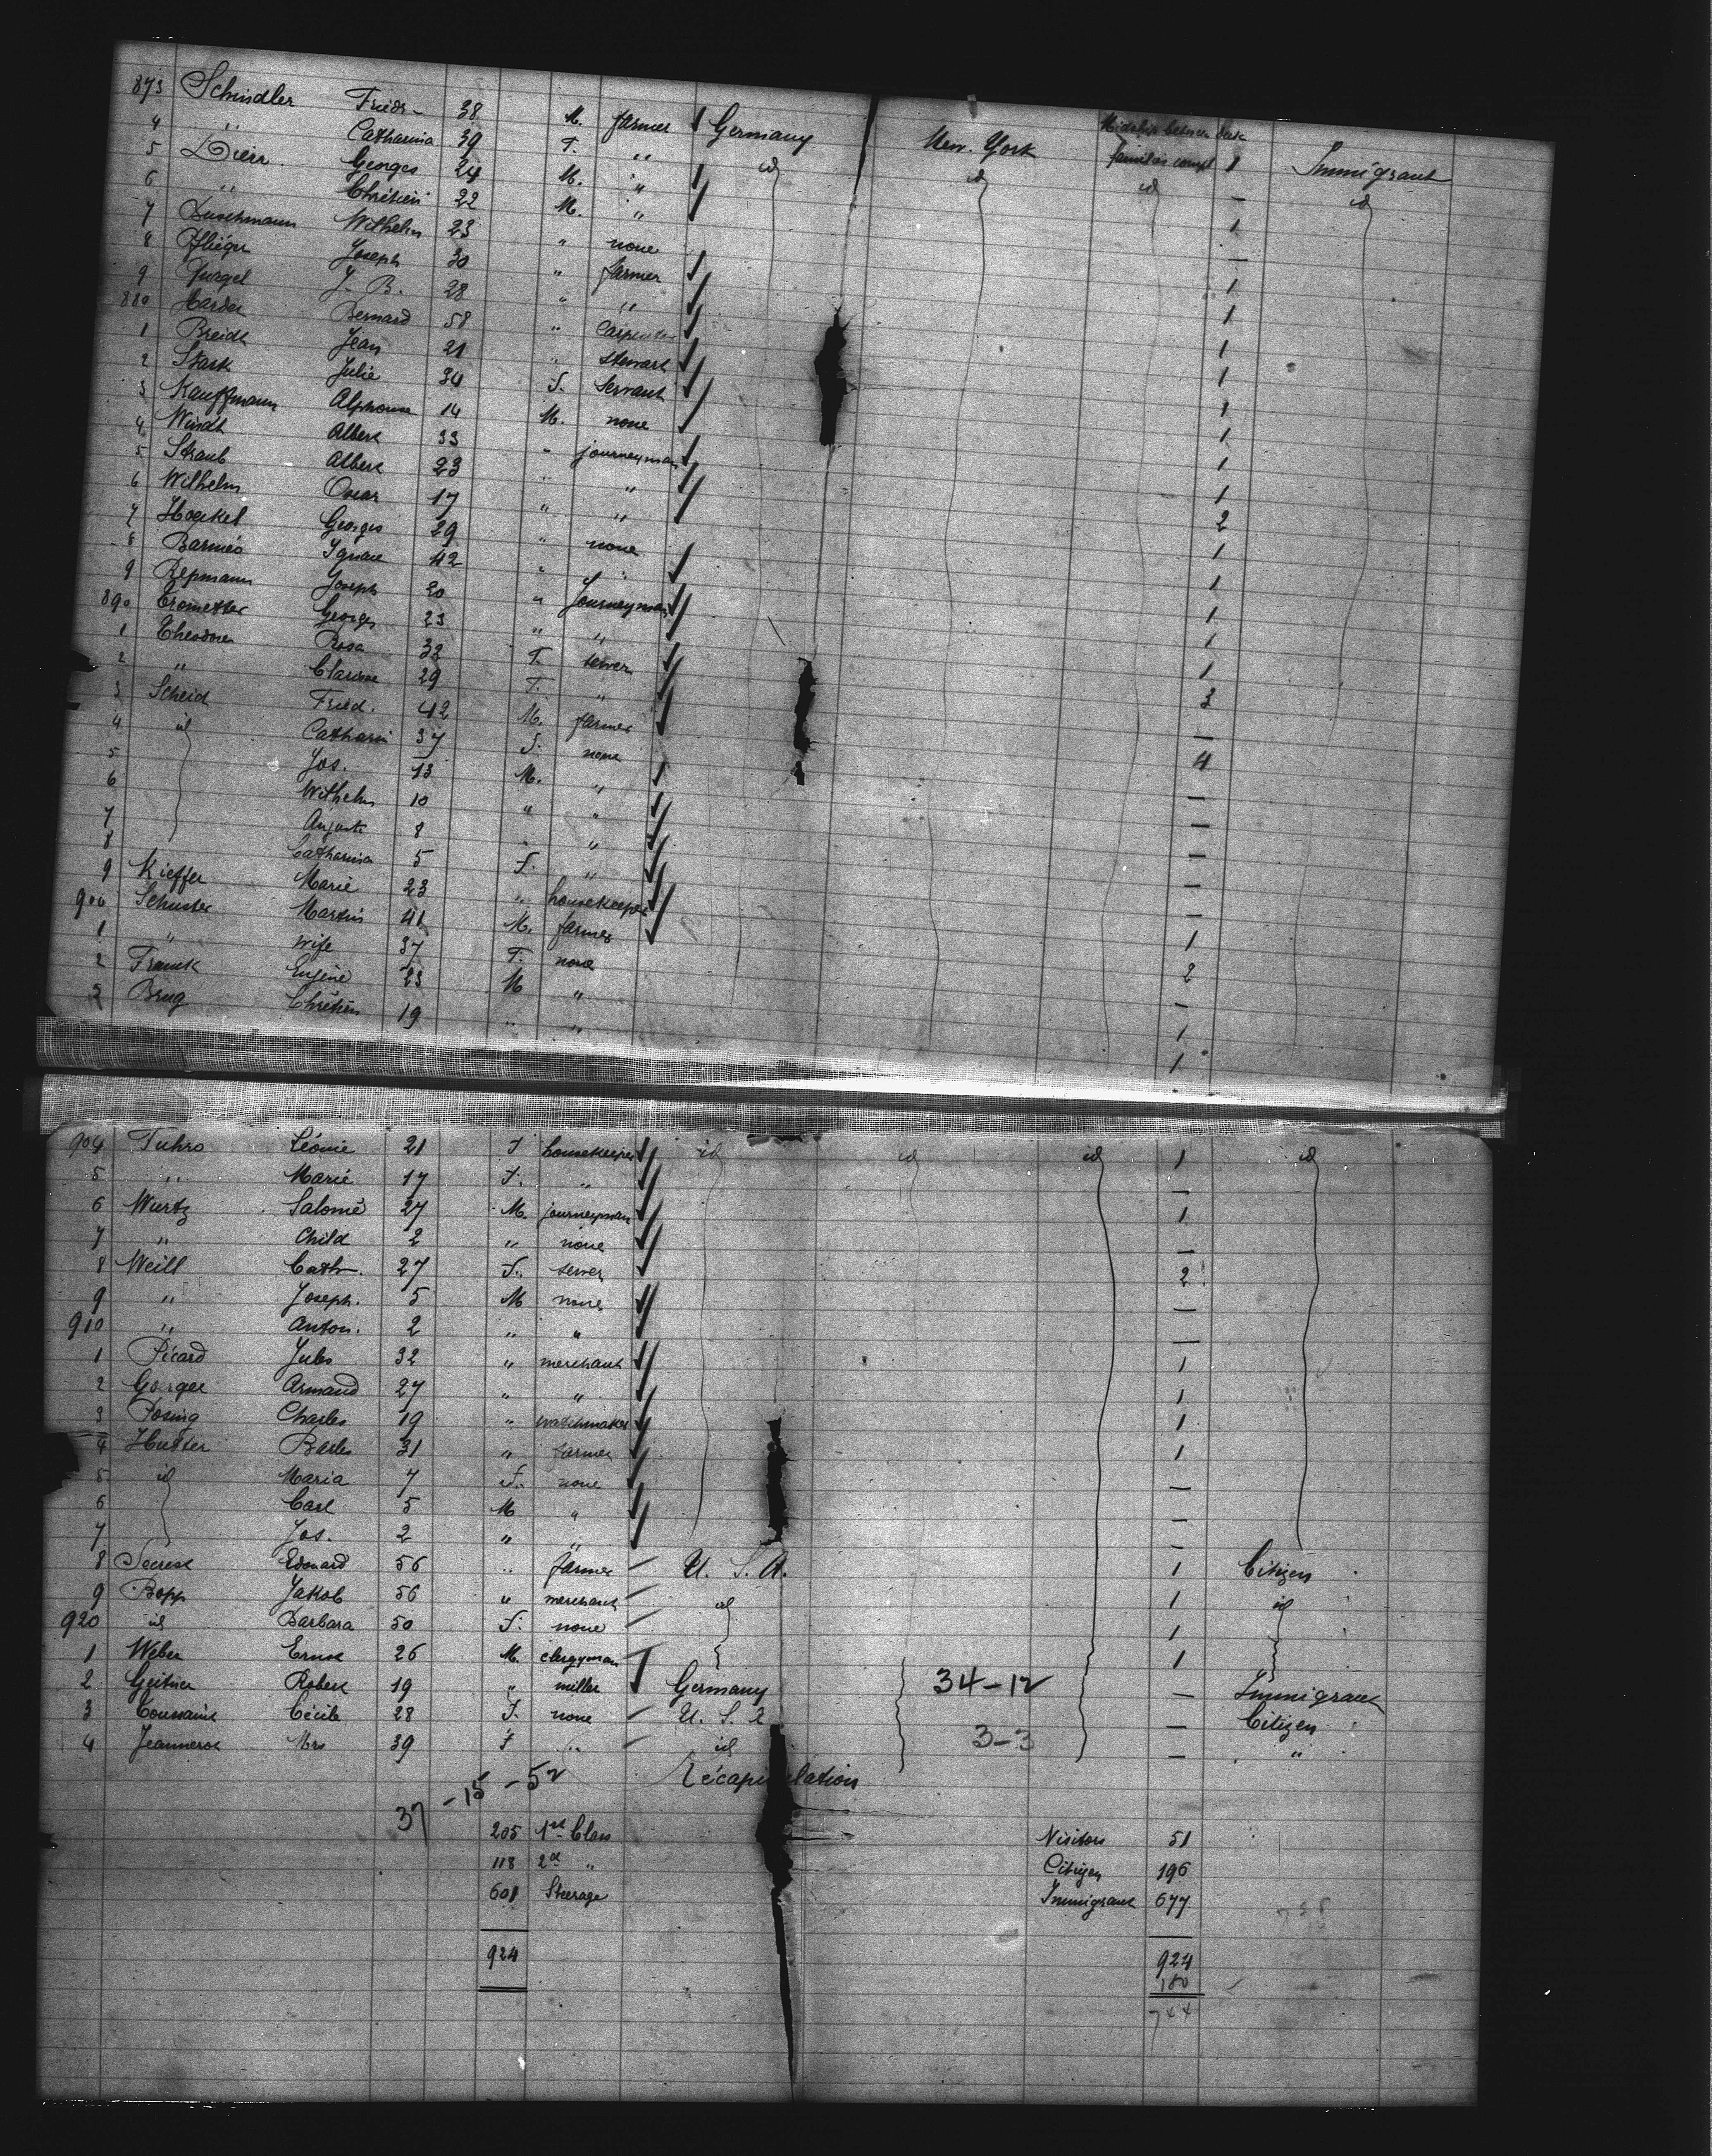 873 Schindler Friedr- 38 M. farmer Germany New-York Midship between deck families compt 1 Immigrant
4 " Catharina 39 F. " id id id - id
5 Dierr Georges 24 M. " 1
6 " Chrétien 22 M. " -
7 Buschmann Wilhelm 23 " none 1
8 Pflieger Joseph 30 " farmer 1
9 Jurgel J. B. 28 " " 1
880 Harder Bernard 58 " Carpenter 1
1 Breidt Jean 21 " stewart 1
2 Stark Julie 34 F. Servant 1
3 Kauffmann Alphonse 14 M. none 1
4 Windt Albert 33 " journeyman 1
5 Straub Albert 23 " " 2
6 Wilhelm Oscar 17 " " 1
7 Hoeckel Georges 29 " none 1
8 Barmes Ignace 42 "
9 Repmann Joseph 20 " Journeyman 1
890 Trometter Georges 23 " " 1
1 Theodore Rosa 32 F. sewer 3
2 " Clarisse 29 F. " -
3 Scheid Fried. 42 M. farmer 4
4 id Catharin 37 F. none -
5 Jos. 13 M. " -
6 Wilhelm 10 " " -
7 Auguste 8 " " -
8 Catharina 5 F. " -
9 Kieffer Marie 23 " housekeeper 1
900 Schuster Martin 41 M. farmer 2
1 " wife 37 F. none -
2 Franck Eugène 23 M " 1
3 Brug Chrétien 19 " " 1
904 Fuhro Léonie 21 F housekeeper id id id 1 id
5 " Marie 17 F. " -
6 Wurtz Salomé 27 M. journeyman 1
7 " Child 2 " none -
8 Weill Cath. 27 F. sewer 2
9 " Joseph. 5 M none -
910 " Anton. 2 " " -
1 Picard Jules 32 " merchant 1
2 Gorger Armand 27 " " 1
3 Posing Charles 19 " watchmaker 1
4 Hutter Barles 31 " farmer 1
5 id Maria 7 F. none -
6 Carl 5 M " -
7 Jos. 2 " " -
8 Secrest Edouard 56 " farmer U. S. A. 1 Citizen
9 Bopp Jakob 56 " merchant id 1 id
920 id Barbara 50 F. none 1
1 Weber Ernst 26 M. clergyman 1
2 Geitner Robert 19 " miller Germany 34-12 - Immigrant
3 Toussaint Cécile 28 F. none U. S. A - Citizen
4 Jeannerot Mrs 39 F " id 3-3 - "
37 -15 -52 Récapitulation
205 1st Class Visitors 51
118 2d " Citizen 196
601 Steerage Immigrant 677
924 924
180
744